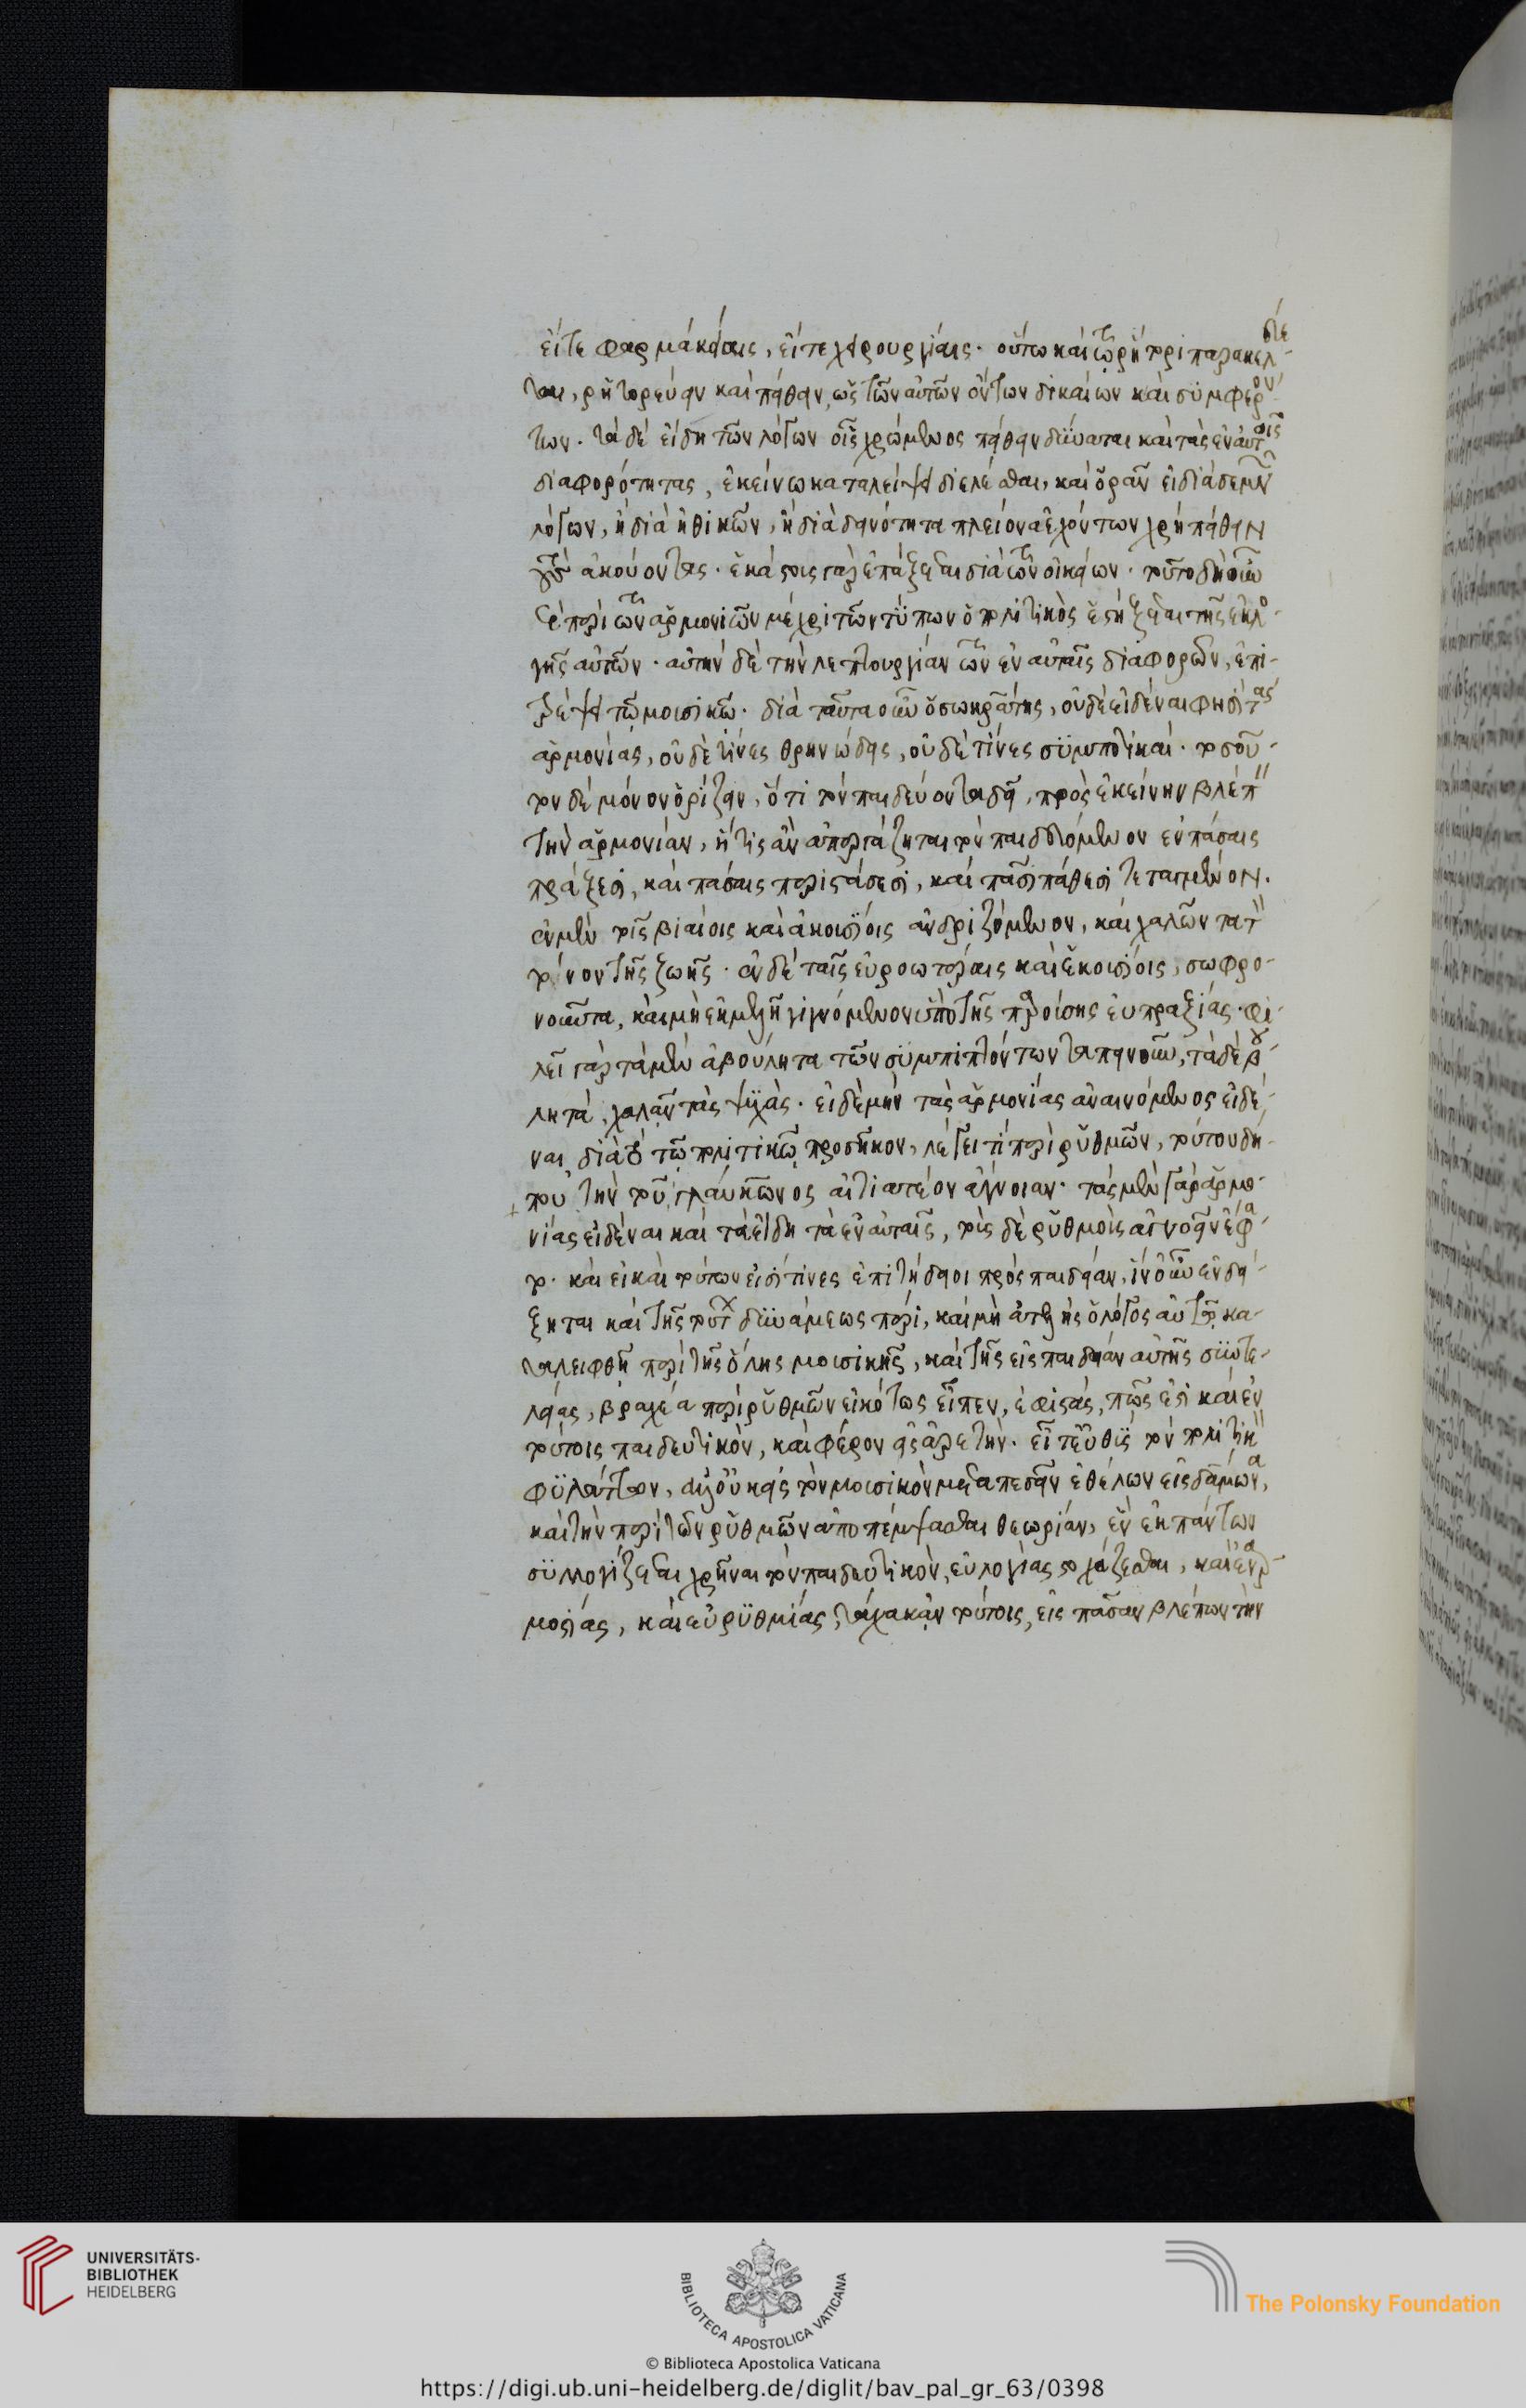 εἴτε φαρμακείαις, εἴτε χειρουργίαις. οὕτω καὶ τῷ ῥήτορι παρακελεύε-
ται, ῥητορεύειν καὶ πείθειν, ὡς τῶν αὐτῶν ὄντων δικαίων καὶ συμφερόν-
των. τὰ δὲ εἴδη τῶν λόγων οἷς χρώμενος πείθειν δύναται καὶ τὰς ἐν αὐτοῖς
διαφορότητας, ἐκείνω καταλείψει διελέσθαι, καὶ ὁρᾶν εἰ διὰ σεμνῶν
λόγων, ἢ διὰ ἠθικῶν, ἢ διὰ δεινότητα πλείονα ἐχόντων χρὴ πείθειν
τοὺς ἀκούοντας. ἑκάστοις γὰρ ἐπάξεσθαι διὰ τῶν οἰκείων. τοῦτο δὴ οὖν
καὶ περὶ τῶν ἁρμονιῶν μέχρι τῶν τύπων ὁ πολιτικὸς ἐξηγεῖται τῆς ἐκλο-
γῆς αὐτῶν. αὐτὴν δὲ τὴν λεπτουργίαν τῶν ἐν αὐταῖς διαφορῶν, ἐπι-
τρέψει τῷ μουσικῷ. διὰ ταῦτα οὖν ὁ σωκράτης, οὐδὲ εἰδέναι φησὶ τὰς
ἁρμονίας, οὐδὲ τίνες θρηνώδεις, οὐδὲ τίνες συμποτικαί. τοσοῦ-
τον δὲ μόνον ὁρίζειν, ὅτι τὸν παιδεύοντα δεῖ, πρὸς ἐκείνην βλέπειν
τὴν ἁρμονίαν, ἥτις ἂν ἀπεργάζηται τὸν παιδευόμενον ἐν πάσαις
πράξεσι, καὶ πάσαις περιστάσεσι, καὶ πᾶσι πάθεσι τεταγμένον.
ἐν μὲν τοῖς βιαίοις καὶ ἀκουσίοις ἀνδριζόμενον, καὶ χαλῶντα τὸν
τόνον τῆς ζωῆς. ἐν δὲ ταῖς εὐροωτέραις καὶ ἑκουσίοις, σωφρο-
νοῦντα, καὶ μὴ ἐκμελῆ γιγνόμενον ὑπὸ τῆς παρούσης εὐπραξίας. φι-
λεῖ γὰρ τὰ μὲν ἀβούλητα τῶν συμπιπτόντων ταπεινοῦν, τὰ δὲ βου-
λητά, χαλᾶν τὰς ψυχάς. εἰ δὲ μὴν τὰς ἁρμονίας ἀναινόμενος εἰδέ-
ναι, διὰ τὸ τῷ πολιτικῷ προσῆκον, λέγει τι περὶ ῥυθμῶν, τούτου δή-
που τὴν τοῦ γλαύκωνος αἰτιατέον ἄγνοιαν. τὰς μὲν γὰρ ἁρμο-
νίας εἰδέναι καὶ τὰ εἴδη τὰ ἐν αὐταῖς, τοὺς δὲ ῥυθμοὺς ἀγνοεῖν ἔφα-
το. καὶ εἰ καὶ τούτων εἰσί τινες ἐπιτήδειοι πρὸς παιδείαν, ἵν' οὖν ἐνδεί-
ξηται καὶ τῆς τούτων δυνάμεως πέρι, καὶ μὴ ἀτελὴς ὁ λόγος αὐτῷ κα-
ταλειφθῇ περὶ τῆς ὅλης μουσικῆς, καὶ τῆς εἰς παιδείαν αὐτῆς συντε-
λείας, βραχέα περὶ ῥυθμῶν εἰκότως εἶπεν, ἐφιστάς, πῶς ἐστι καὶ ἐν
τούτοις παιδευτικὸν, καὶ φέρον εἰς ἀρετὴν. εἶτ' εὐθὺς τὸν πολιτικὸν
φυλάττων, ἀλλ' οὐκ εἰς τὸν μουσικὸν μεταπεσεῖν ἐθέλων εἰς δάμωνα,
καὶ τὴν περὶ τῶν ῥυθμῶν ἀποπέμψασθαι θεωρίαν, ἓν ἐκ πάντων
συλλογίζεσθαι χρῆναι τὸν παιδευτικὸν, εὐλογίας στοχάζεσθαι, καὶ εὐαρ-
μοστίας, καὶ εὐρυθμίας, τάχα κἂν τούτοις, εἰς πᾶσαν βλέπων τὴν
UNIVERSITÄTS-
BIBLIOTHEK
HEIDELBERG
BIBLIOTECA APOSTOLICA VATICANA
The Polonsky Foundation
© Biblioteca Apostolica Vaticana
https://digi.ub.uni-heidelberg.de/diglit/bav_pal_gr_63/0398